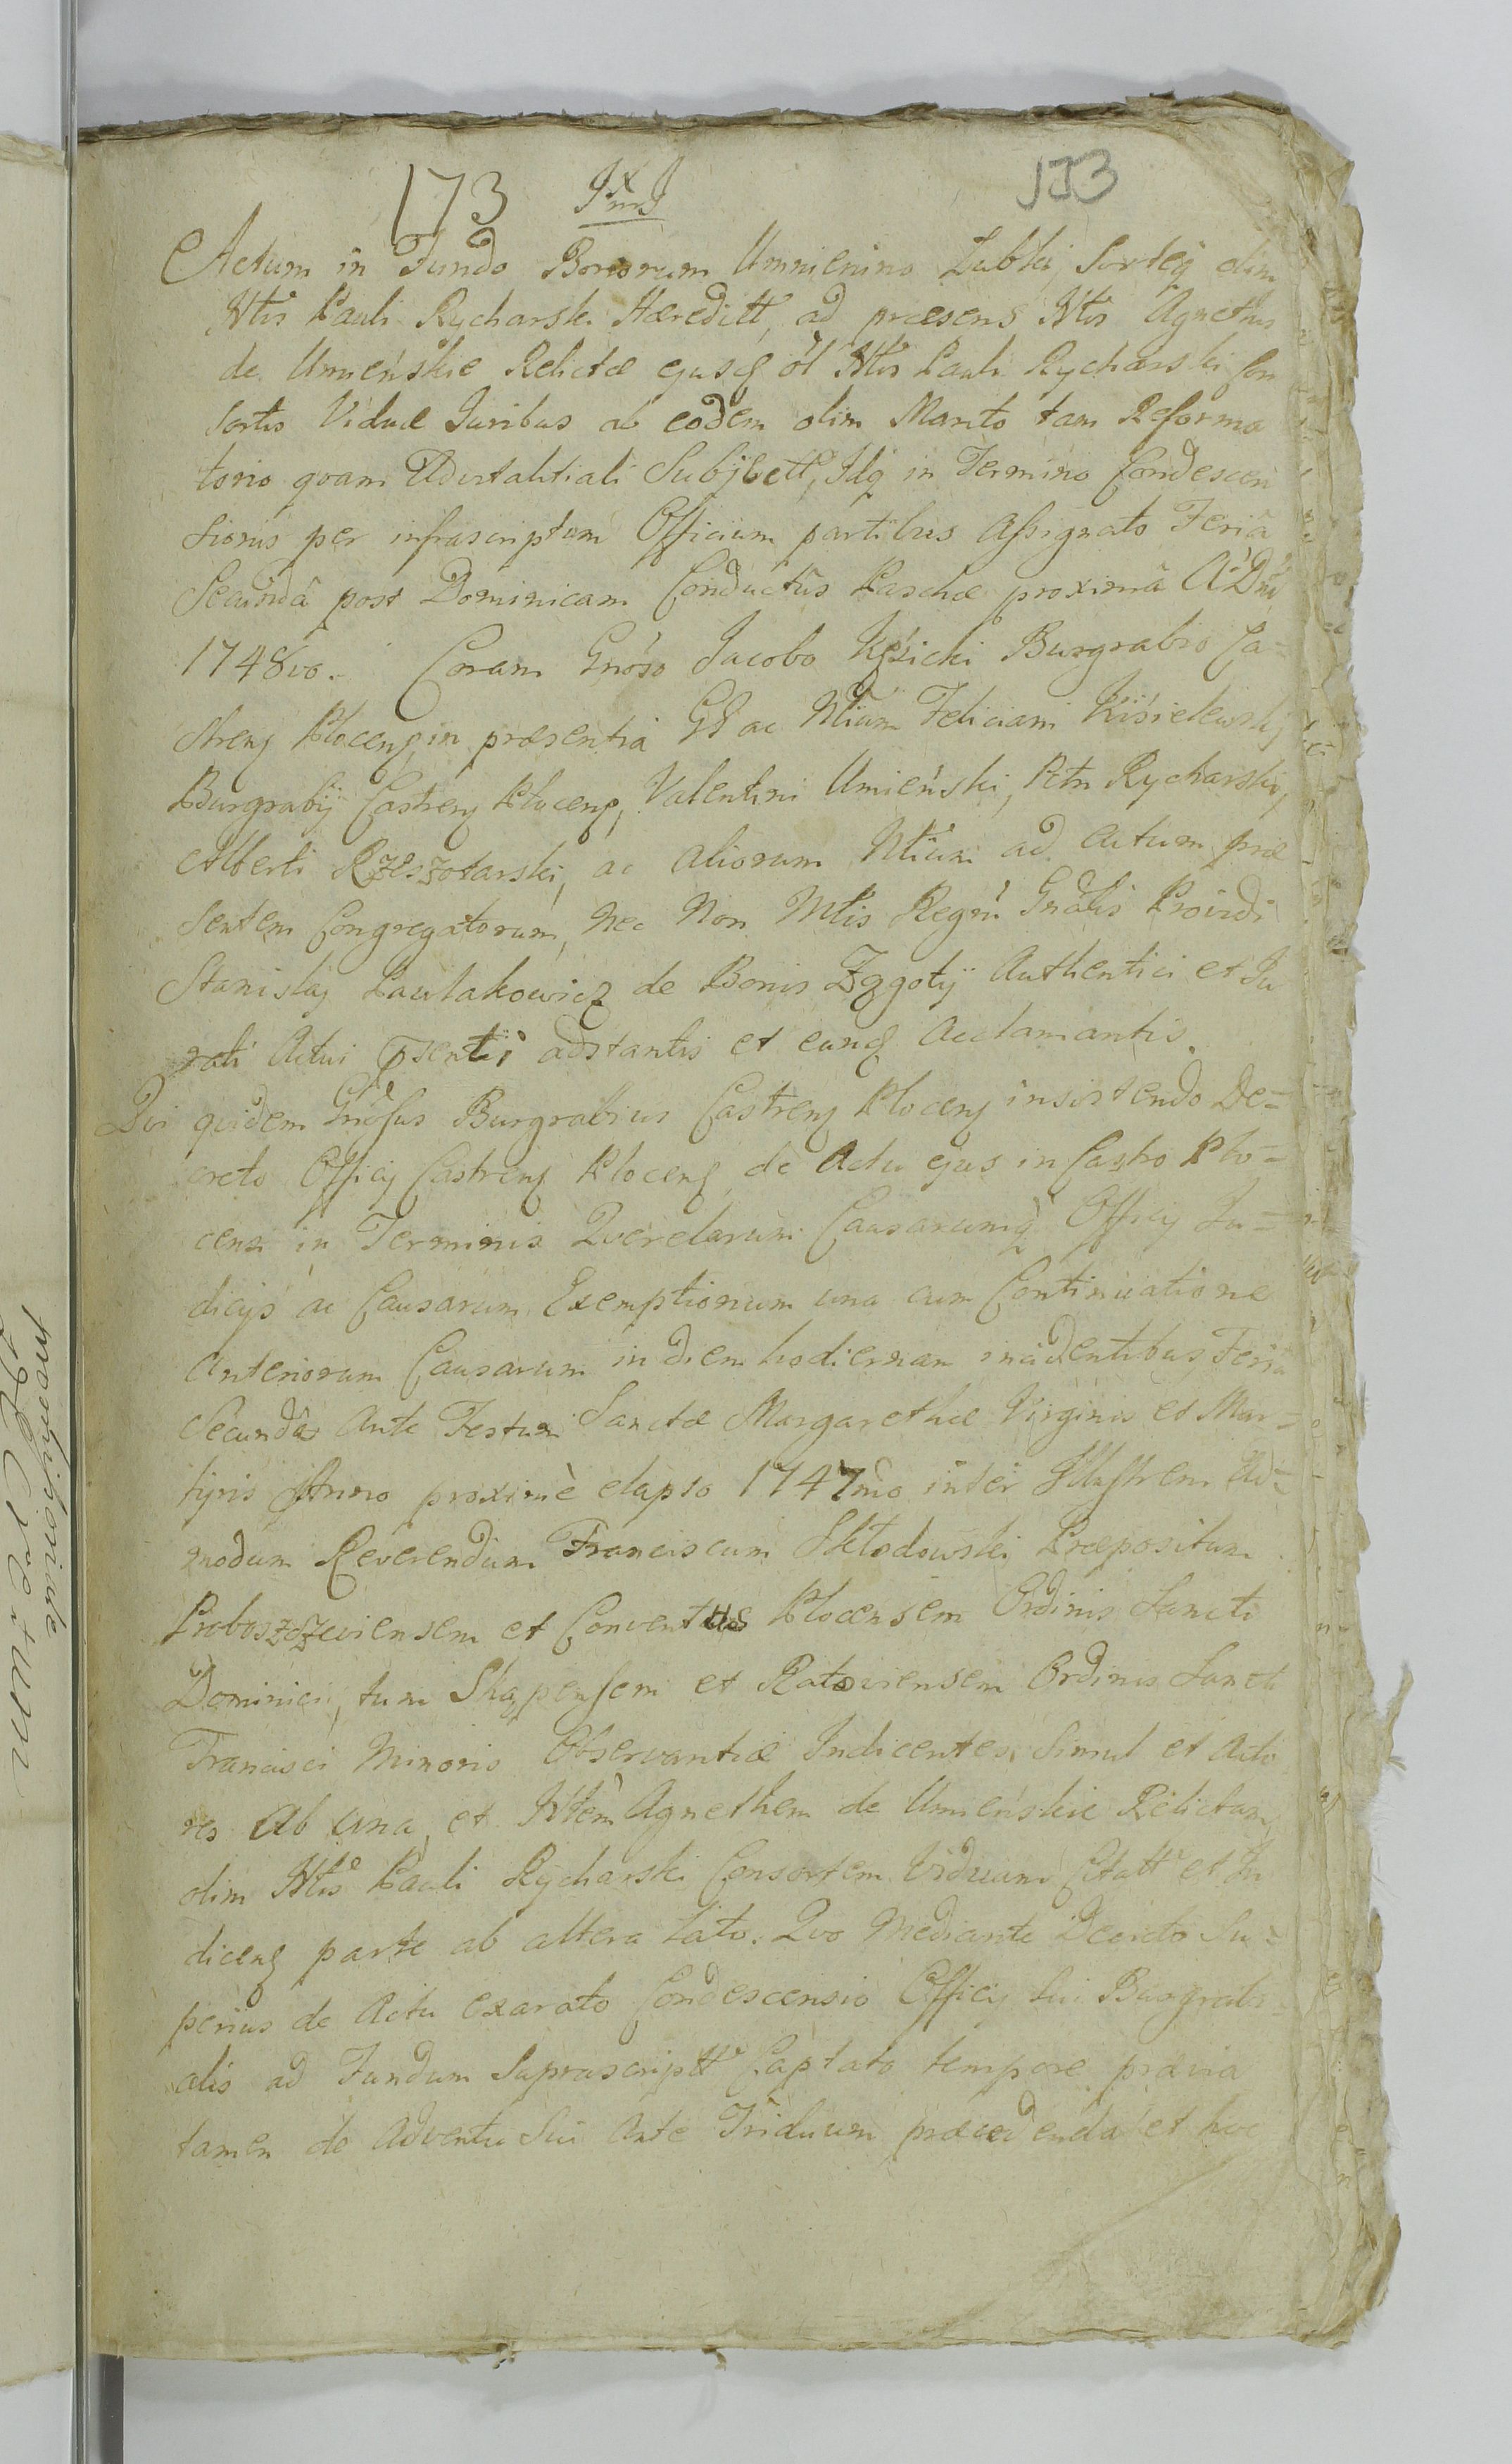 173 173
Actum in Fundo Bonorum Umnienino Lubki Sorteq olim
Ntis Pauli Rycharski Hæreditt, ad præsens Ntis Agnethis
de Umieńskie Relictæ ejusq ol Ntis Pauli Rycharski Con
sortis Viduæ Juribus ab eodem olim Marito tam Reforma
torio qvam Advitalitiali Subjectt, Idq in Termino Condescen
sionis per infrascriptum Officium partibus Assignato Feriâ
Secundâ post Dominicam Conductûs Paschæ proximâ A: Dni
1748vo. Coram Gnoso Jacobo Kęsicki Burgrabio Ca=
strens Plocens, in præsentiâ GG ac Ntium Feliciani Kisielewski
Burgrabij Castrens Plocens, Valentini Umieński, Petri Rycharski,
Alberti Rzeszotarski, ac aliorum Ntium ad actum præ
sentem Congregatorum, Nec Non Mtis Regni Gnalis Providi
Stanislaj Pawlakowicz de Bonis Zągoty Authentici et Ju
rati Actui psenti adstantis et eunq Acclamantis.
Qvi qvidem Gnosus Burgrabius Castrens Plocens insistendo De=
creto Officij Castrens Plocens, de Actu ejus in Castro Plo=
censi in Terminis Qverelarum Causarumq Officij Ju=
dicijs ac Causarum Exemptionum una cum Continuatione
Anteriorum Causarum in diem hodiernam incidentibus Feriâ
Secundâ Ante Festum Sanctæ Margarethæ Virginis et Mar=
tyris Anno proximè elapso 1747mo inter Illustrem Ad=
modum Reverendum Franciscum Skłodowski Præpositum
Proboszczeviensem et Conventus Plocensem Ordinis Sancti
Dominici, tum Skąpensem et Ratoviensem Ordinis Sancti
Francisci Minoris Observantiæ Indicentes Simul et Acto
res Ab una, et Ntem Agnethem de Umieńskie Relictam
olim Ntis Pauli Rycharski Consortem Viduam Citatt et In
dicens parte ab altera Lato. Qvo Mediante Decreto Su=
perius de Actu exarato Condescensio Officij sui Burgrabi=
alis ad Fundum Suprascriptt Captato tempore prævia
tamen de Adventu Sui Ante Triduum præcedenda et hoc